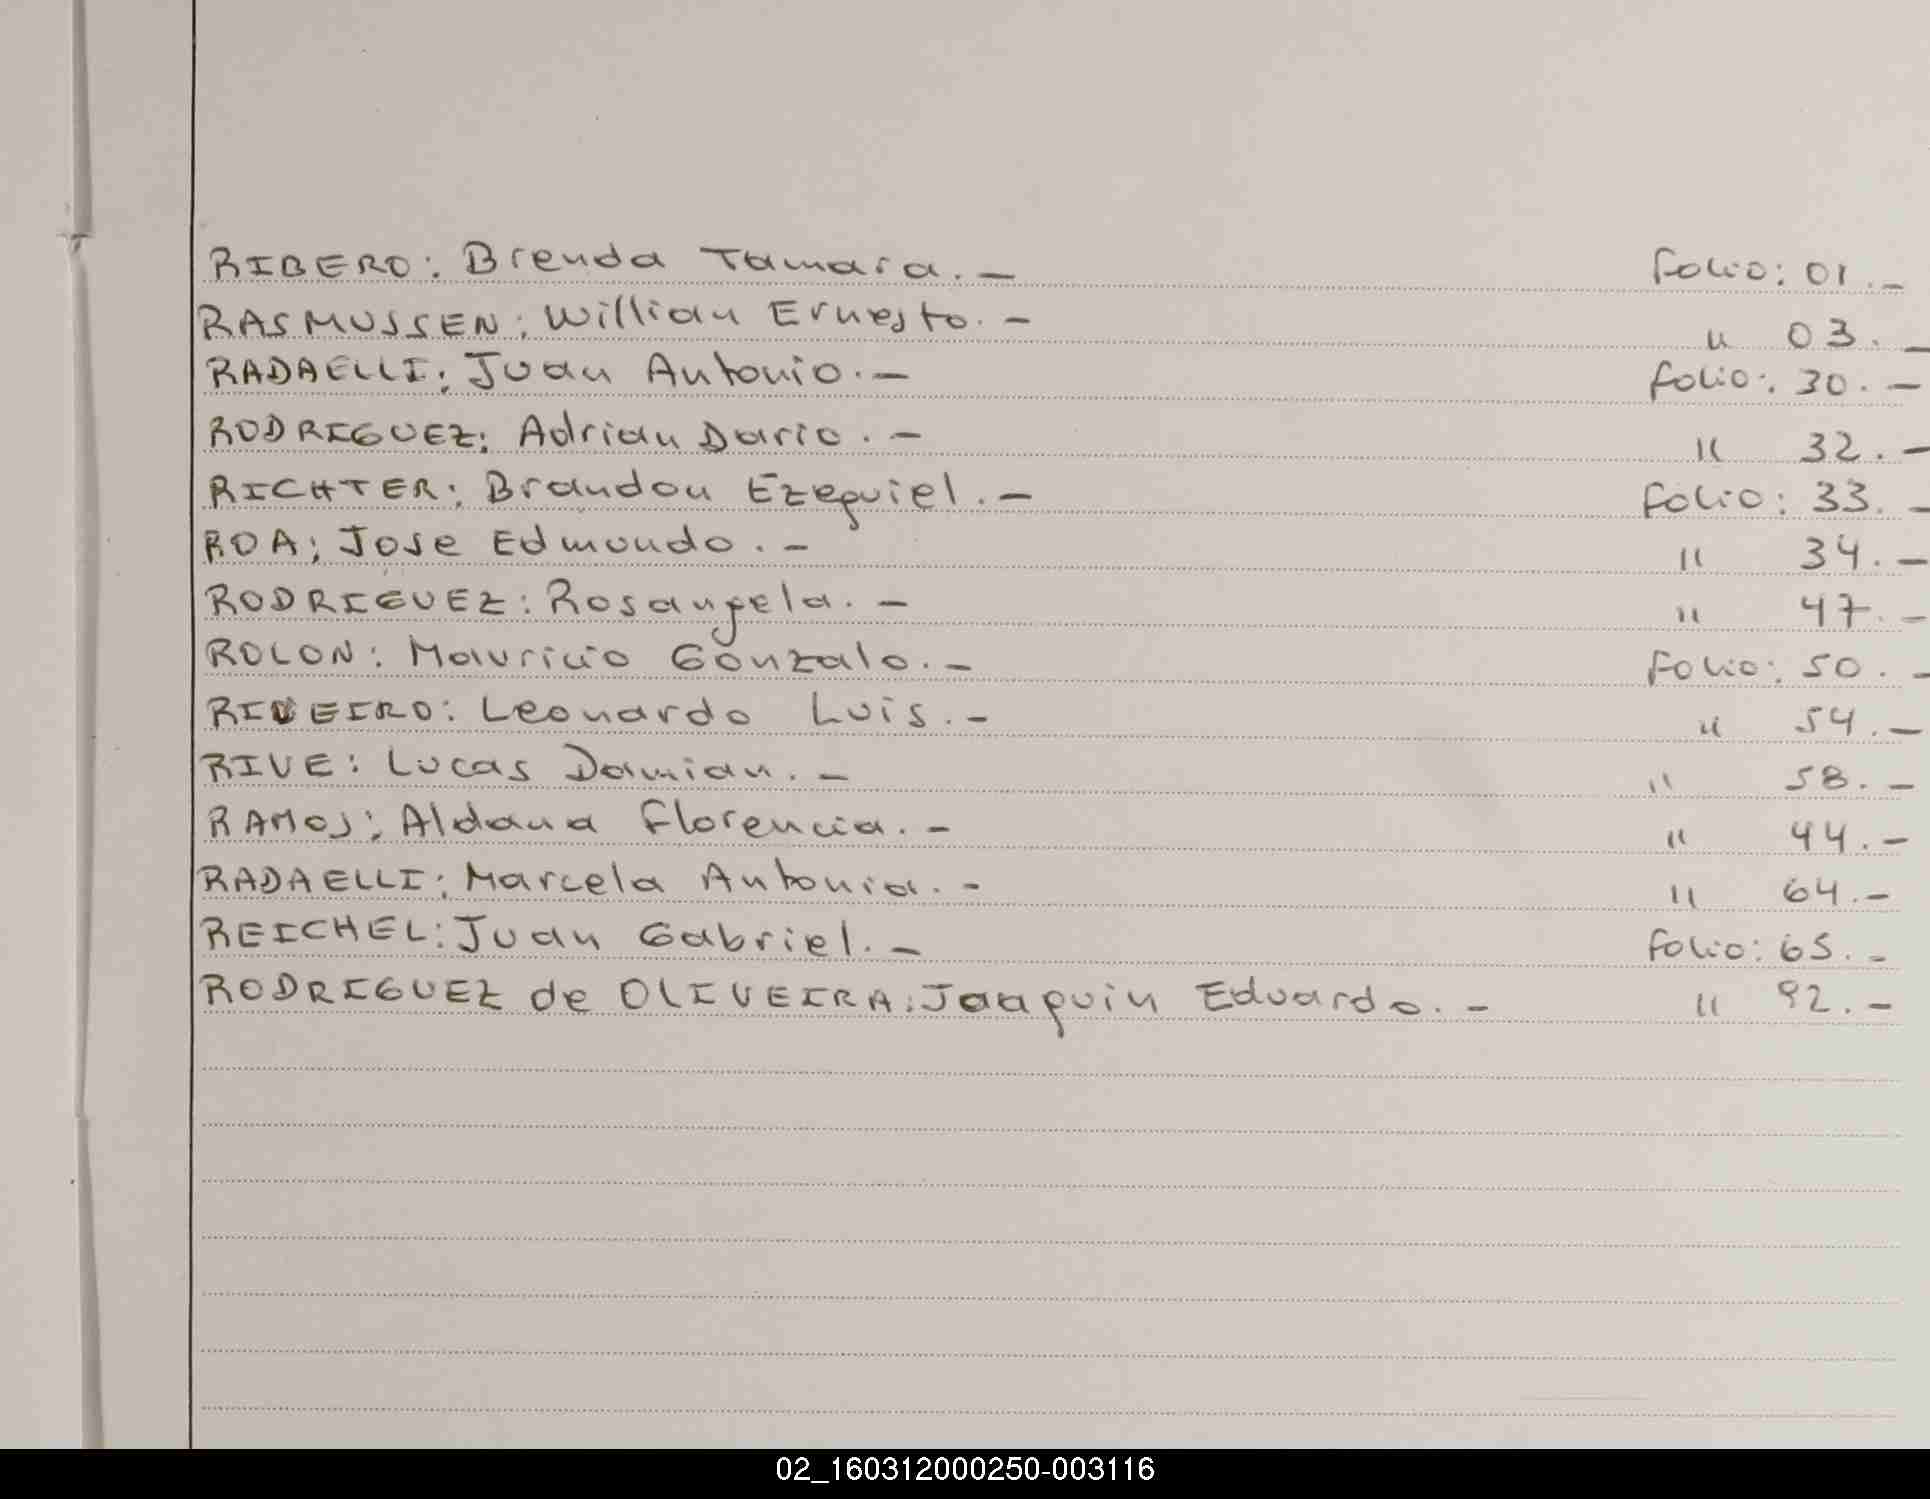 RIBERO: Brenda Tamara.- folio: 01.-
RASMUSSEN: Willian Ernesto.- " 03.-
RADAELLI: Juan Antonio.- folio: 30.-
RODRIGUEZ: Adrian Dario.- " 32.-
RICHTER: Brandon Ezequiel.- folio: 33.-
ROA: Jose Edmundo.- " 34.-
RODRIGUEZ: Rosangela.- " 47.-
ROLON: Mauricio Gonzalo.- folio: 50.-
RIVEIRO: Leonardo Luis.- " 54.-
RIVE: Lucas Damian.- " 58.-
RAMOS: Aldana Florencia.- " 44.-
RADAELLI: Marcela Antonia.- " 64.-
REICHEL: Juan Gabriel.- folio: 65.-
RODRIGUEZ de OLIVEIRA: Joaquin Eduardo.- " 92.-
02_160312000250-003116